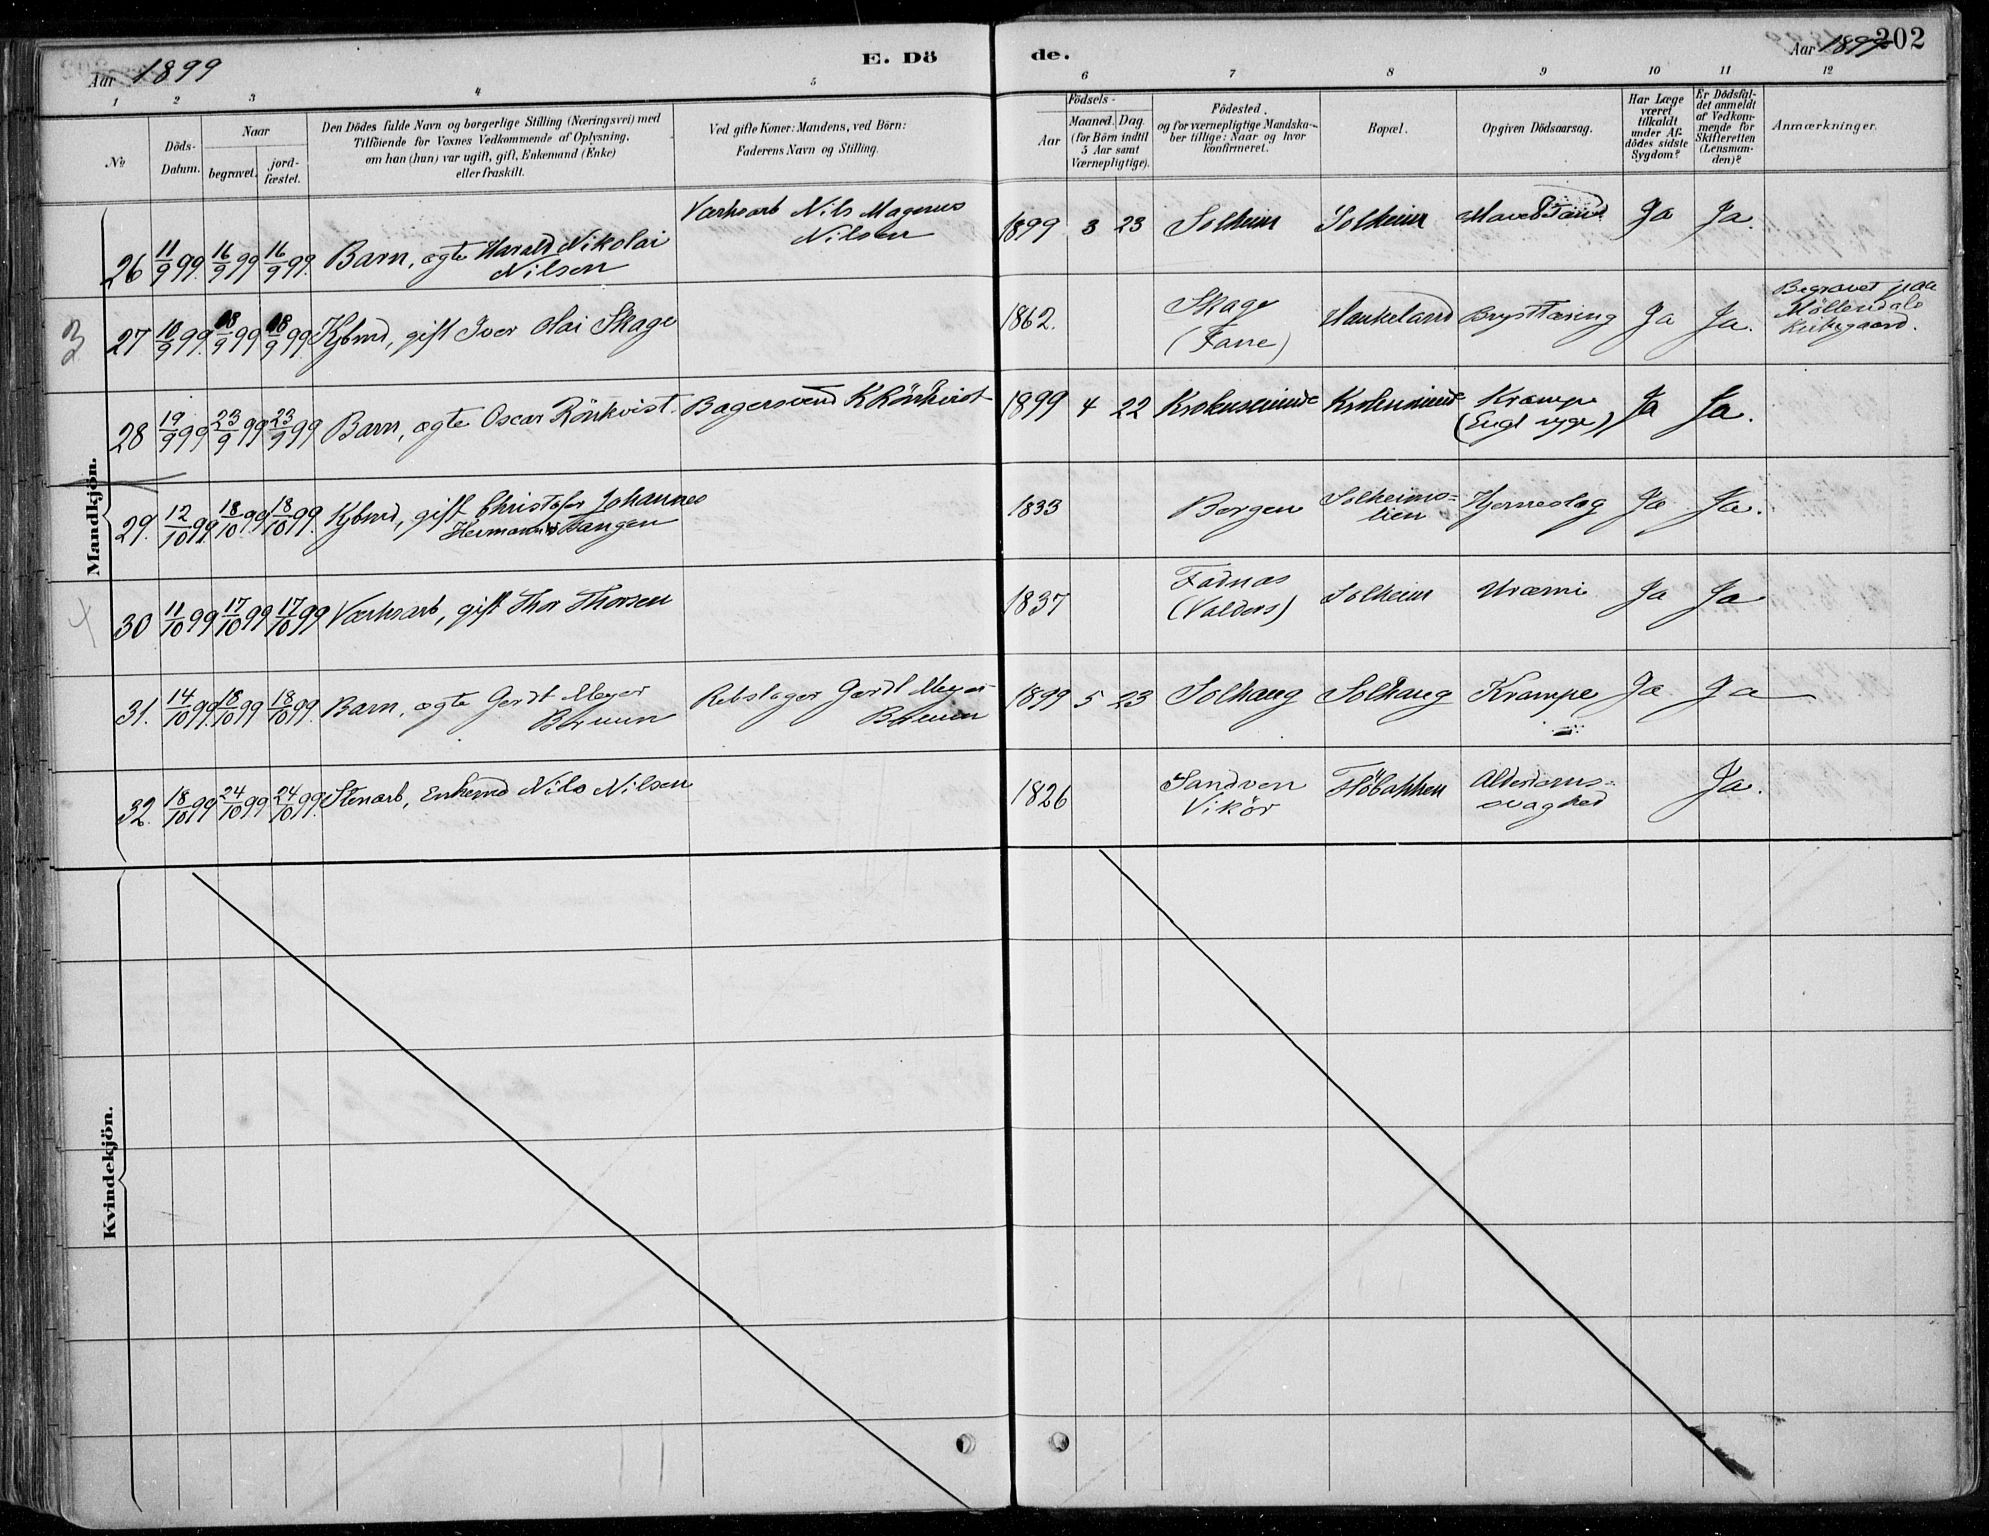 Aar 1899
E. Dö
de.
Aar 1899
202
1 2 3 4 5
6 7 8 9 10 11 12
No
Döds-
Datum.
Naar
begravet.
jord-
fæstet.
Den Dödes fulde Navn og borgerlige Stilling (Næringsvei) med
Tilföiende for Voxnes Vedkommende af Oplysning.
om han (hun) var ugift, gift, Enkemand (Enke)
eller fraskilt.
Ved gifte Koner: Mandens, ved Börn:
Faderens Navn og Stilling.
Födsels-
Aar
Maaned. Dag.
(for Börn indtil
5 Aar samt
Værnepligtige).
Födested.
og for værnepligtige Mandska-
ber tillige: Naar og hvor
konfirmeret.
Bopæl.
Opgiven Dödsaarsag.
Har Læge
været
tilkaldt
under Af-
dödes sidste
Sygdom?
Er Dödsfal-
det anmeldt
af Vedkom-
mende for
Skifteretten
(Lensman-
den)?
Anmærkninger.
Mandkjön.
26 11/9 99. 16/9 99 16/9 99. Barn, ægte Harald Nikolai
Nilsen
Værksarb Nils Magnus
Nilsen
1899 3 23 Solheim Solheim Ja Ja.
27 10/9 99. 18/9 99 18/9 99 Kjbmd, gift Iver Olai Skage
1862. Skage
(Fane)
Haukeland Brysttæring Ja Ja.
Begravet paa
Möllendals
Kirkegaard.
28 19/9 99 23/9 99 23/9 99 Barn, ægte Oscar Rönkvist.
Bagersvend K Rönkvist
1899 4 22 Krohnsminde Krohnsminde Krampe
(Engl syge)
Ja Ja.
29. 12/10 99. 18/10 99 18/10 99. Kjbmd, gift Christofer Johannes
Hermann Bangen
1833 Bergen Solheims-
lien
Hjerneslag Ja Ja.
30 11/10 99 17/10 99 17/10 99 Værksarb, gift Thor Thorsen
1837 Fodnæs
(Valders)
Solheim Uræmi Ja Ja
31. 14/10 99. 18/10 99 18/10 99. Barn, ægte Gerdt Meyer
Bruun
Rebslager Gerdt Meyer
Bruun
1899 5 23 Solhaug Solhaug Krampe Ja Ja
32. 18/10 99 24/10 99 24/10 99. Stenarb, Enkemd Nils Nilsen
1826 Sandven
Vikör
Flöbakken Alderdoms-
svaghed
Ja.
Kvindekjön.